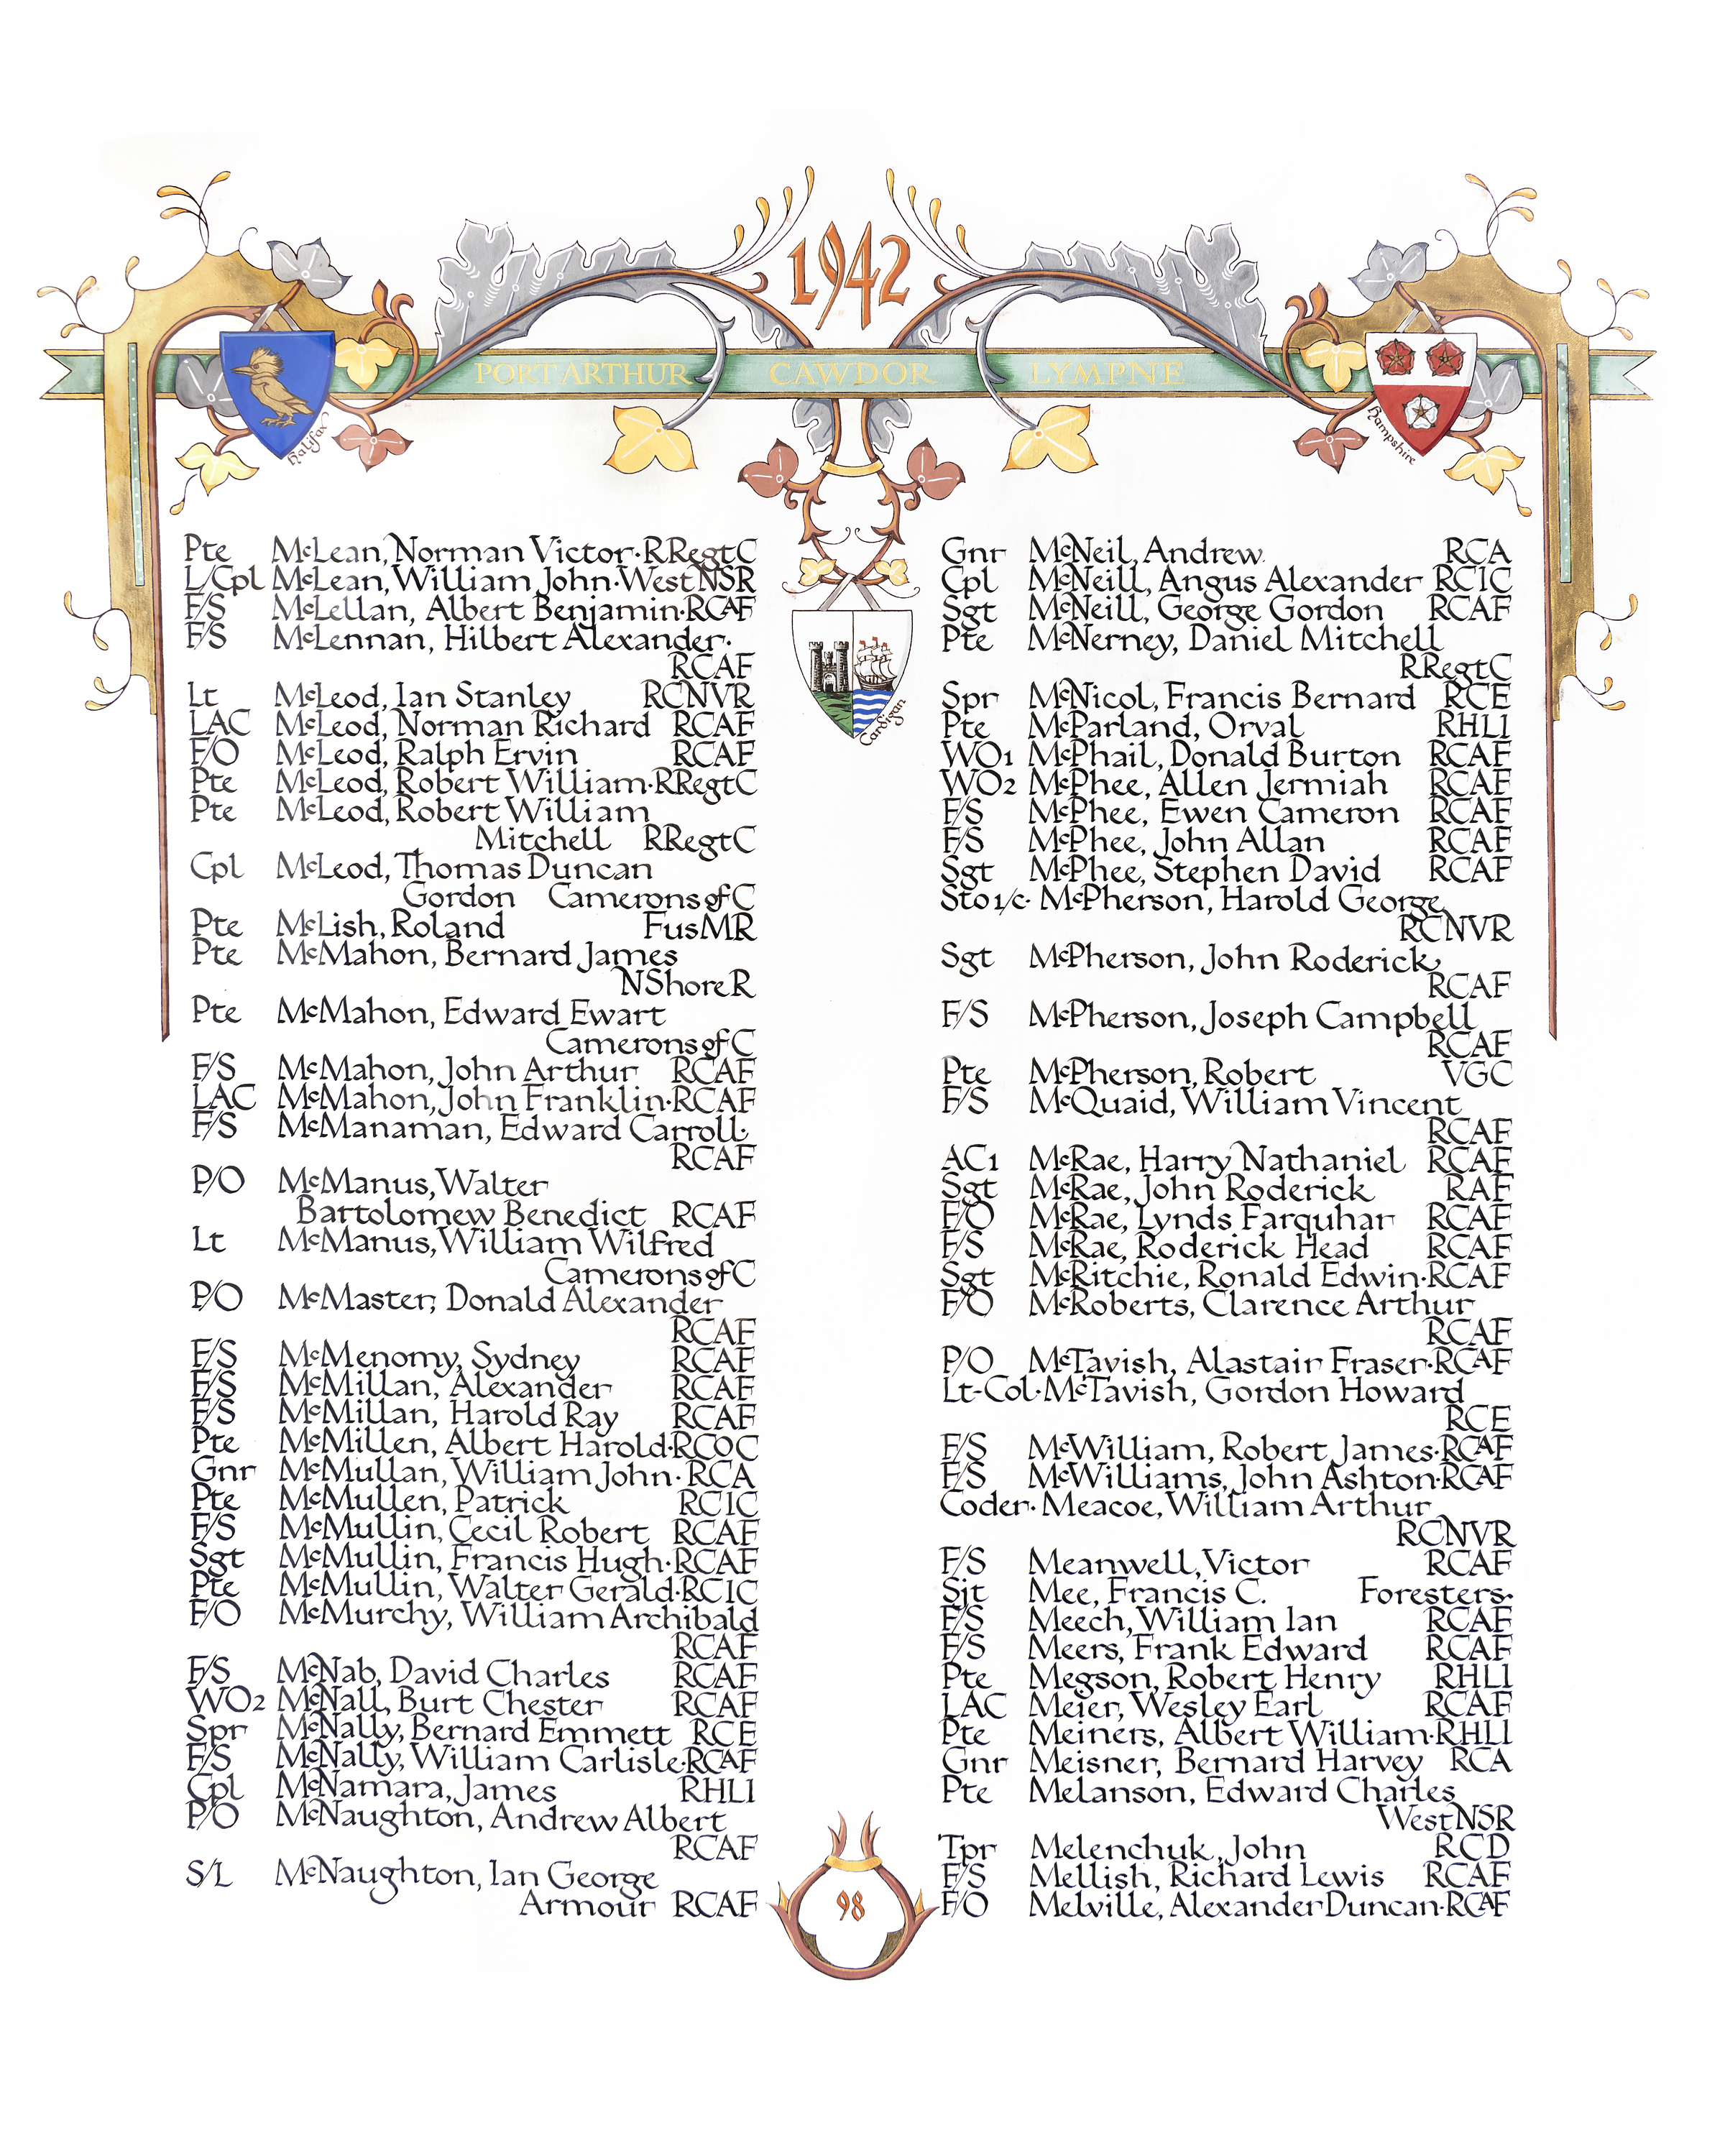 1942
PORT ARTHUR CAWDOR LYMPNE
Halifax
Hampshire
Cardigan
Pte McLean, Norman Victor·RRegtC
L/Cpl McLean, William John·WestNSR
F/S McLellan, Albert Benjamin·RCAF
F/S McLennan, Hilbert Alexander·
RCAF
Lt McLeod, Ian Stanley RCNVR
LAC McLeod, Norman Richard RCAF
F/O McLeod, Ralph Ervin RCAF
Pte McLeod, Robert William·RRegtC
Pte McLeod, Robert William
Mitchell RRegtC
Cpl McLeod, Thomas Duncan
Gordon Camerons of C
Pte McLish, Roland FusMR
Pte McMahon, Bernard James
NShoreR
Pte McMahon, Edward Ewart
Camerons of C
F/S McMahon, John Arthur RCAF
LAC McMahon, John Franklin·RCAF
F/S McManaman, Edward Carroll·
RCAF
P/O McManus, Walter
Bartolomew Benedict RCAF
Lt McManus, William Wilfred
Camerons of C
P/O McMaster, Donald Alexander
RCAF
F/S McMenomy, Sydney RCAF
F/S McMillan, Alexander RCAF
F/S McMillan, Harold Ray RCAF
Pte McMillen, Albert Harold·RCOC
Gnr McMullan, William John·RCA
Pte McMullen, Patrick RCIC
F/S McMullin, Cecil Robert RCAF
Sgt McMullin, Francis Hugh·RCAF
Pte McMullin, Walter Gerald·RCIC
F/O McMurchy, William Archibald
RCAF
F/S McNab, David Charles RCAF
WO2 McNall, Burt Chester RCAF
Spr McNally, Bernard Emmett RCE
F/S McNally, William Carlisle·RCAF
Cpl McNamara, James RHLI
P/O McNaughton, Andrew Albert
RCAF
S/L McNaughton, Ian George
Armour RCAF
Gnr McNeil, Andrew RCA
Cpl McNeill, Angus Alexander RCIC
Sgt McNeill, George Gordon RCAF
Pte McNerney, Daniel Mitchell
RRegtC
Spr McNicol, Francis Bernard RCE
Pte McParland, Orval RHLI
WO1 McPhail, Donald Burton RCAF
WO2 McPhee, Allen Jermiah RCAF
F/S McPhee, Ewen Cameron RCAF
F/S McPhee, John Allan RCAF
Sgt McPhee, Stephen David RCAF
Sto 1/c· McPherson, Harold George
RCNVR
Sgt McPherson, John Roderick
RCAF
F/S McPherson, Joseph Campbell
RCAF
Pte McPherson, Robert VGC
F/S McQuaid, William Vincent
RCAF
AC1 McRae, Harry Nathaniel RCAF
Sgt McRae, John Roderick RAF
F/O McRae, Lynds Farquhar RCAF
F/S McRae, Roderick Head RCAF
Sgt McRitchie, Ronald Edwin·RCAF
F/O McRoberts, Clarence Arthur
RCAF
P/O McTavish, Alastair Fraser·RCAF
Lt-Col·McTavish, Gordon Howard
RCE
F/S McWilliam, Robert James·RCAF
F/S McWilliams, John Ashton·RCAF
Coder· Meacoe, William Arthur
RCNVR
F/S Meanwell, Victor RCAF
Sjt Mee, Francis C. Foresters·
F/S Meech, William Ian RCAF
F/S Meers, Frank Edward RCAF
Pte Megson, Robert Henry RHLI
LAC Meier, Wesley Earl RCAF
Pte Meiners, Albert William·RHLI
Gnr Meisner, Bernard Harvey RCA
Pte Melanson, Edward Charles
WestNSR
Tpr Melenchuk, John RCD
F/S Mellish, Richard Lewis RCAF
F/O Melville, Alexander Duncan·RCAF
98